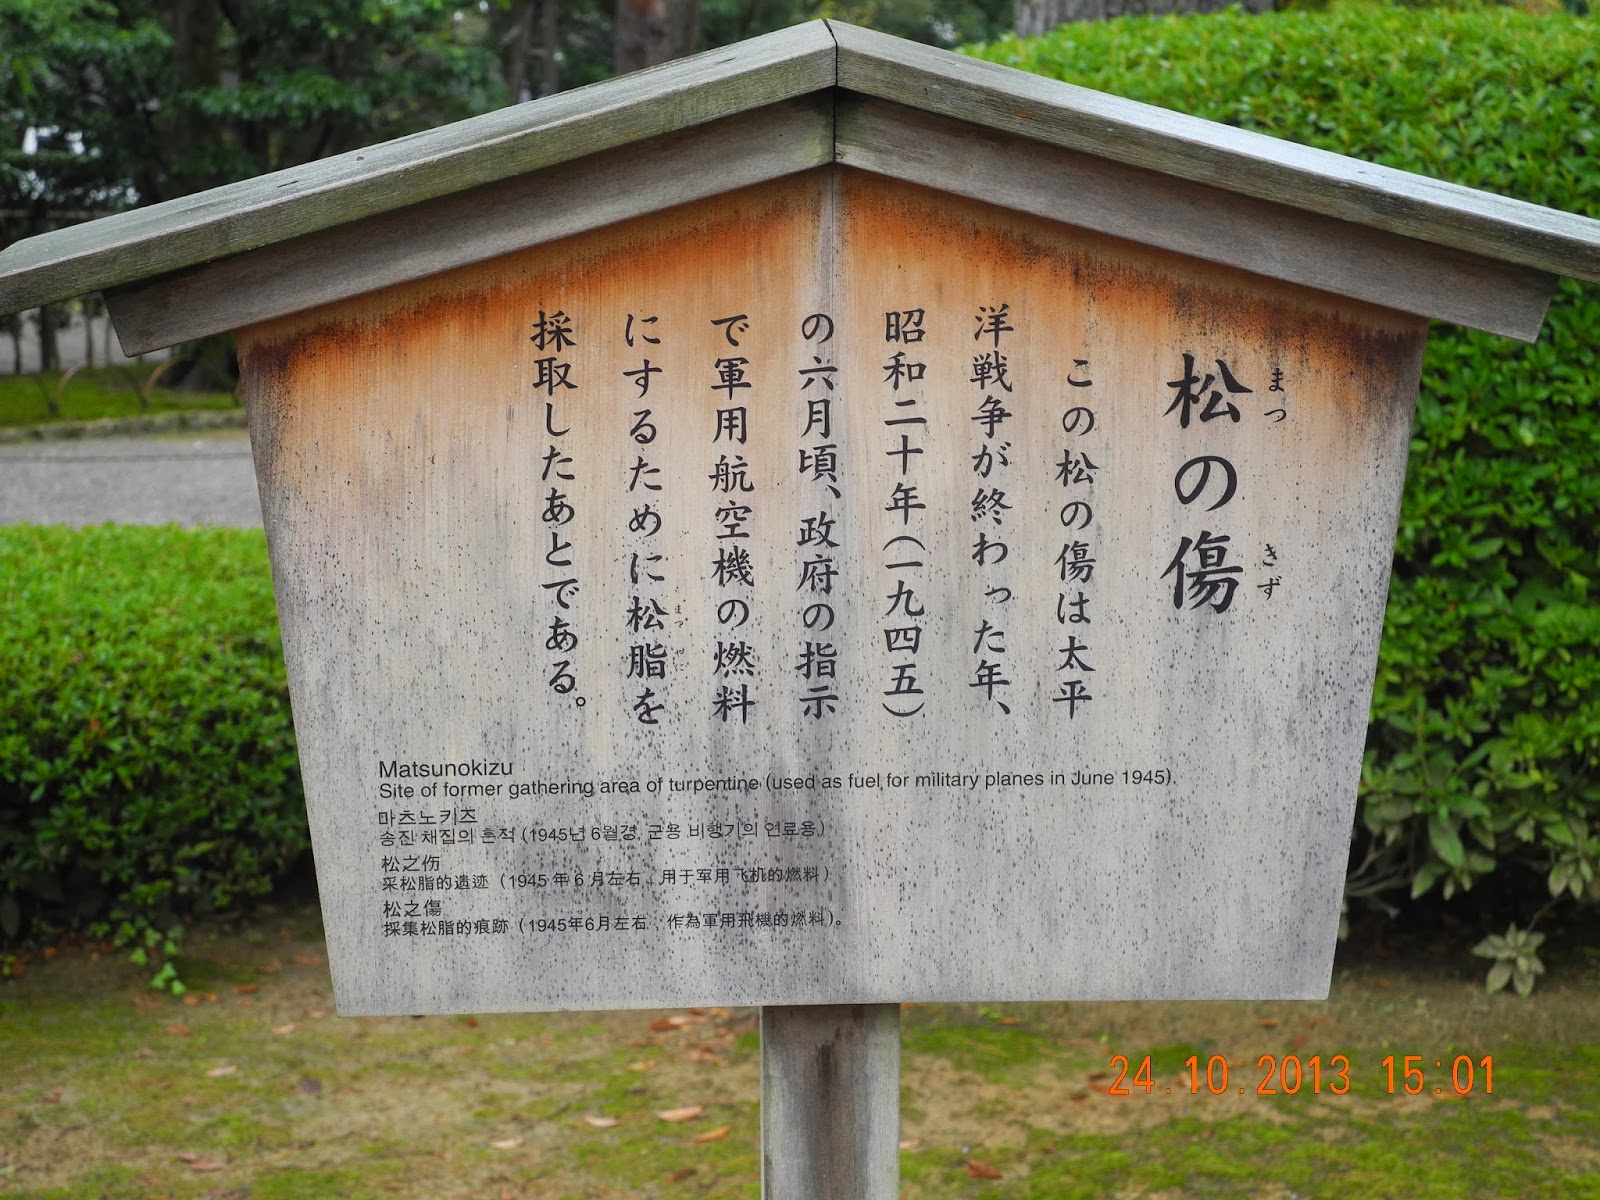 松の傷
まつ
きず
この松の傷は太平
洋戦争が終わった年、
昭和二十年(一九四五)
の六月頃、政府の指示
で軍用航空機の燃料
にするために松脂を
採取したあとである。
Matsunokizu
Site of former gathering area of turpentine (used as fuel for military planes in June 1945).
마츠노키즈
송진 채집의 흔적 (1945년 6월경, 군용 비행기의 연료용)
松之伤
采松脂的遗迹（1945 年 6 月左右，用于军用飞机的燃料）
松之傷
採集松脂的痕跡（1945年6月左右，作為軍用飛機的燃料）。
24.10.2013 15:01